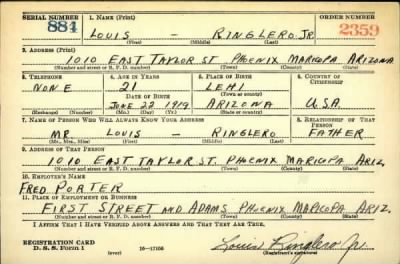 SERIAL NUMBER 1. NAME (Print) ORDER NUMBER
884 LOUIS - RINGLERO. JR. 2359
(First) (Middle) (Last)
2. ADDRESS (Print)
1010 EAST TAYLOR ST PHOENIX MARICOPA ARIZONA
(Number and street or R. F. D. number) (Town) (County) (State)
3. TELEPHONE 4. AGE IN YEARS 5. PLACE OF BIRTH 6. COUNTRY OF CITIZENSHIP
NONE 21 LEHI
DATE OF BIRTH (Town or county)
JUNE 22 1919 ARIZONA U.S.A.
(Exchange) (Number) (Mo.) (Day) (Yr.) (State or country)
7. NAME OF PERSON WHO WILL ALWAYS KNOW YOUR ADDRESS 8. RELATIONSHIP OF THAT PERSON
MR. LOUIS - RINGLERO FATHER
(Mr., Mrs., Miss) (First) (Middle) (Last)
9. ADDRESS OF THAT PERSON
1010 EAST TAYLOR ST. PHOENIX MARICOPA ARIZ.
(Number and street or R. F. D. number) (Town) (County) (State)
10. EMPLOYER'S NAME
FRED PORTER
11. PLACE OF EMPLOYMENT OR BUSINESS
FIRST STREET AND ADAMS PHOENIX MARICOPA ARIZ.
(Number and street or R. F. D. number) (Town) (County) (State)
I AFFIRM THAT I HAVE VERIFIED ABOVE ANSWERS AND THAT THEY ARE TRUE.
REGISTRATION CARD
D. S. S. Form 1 (over) 16-17105 Louis Ringlero Jr.
(Registrant's signature)